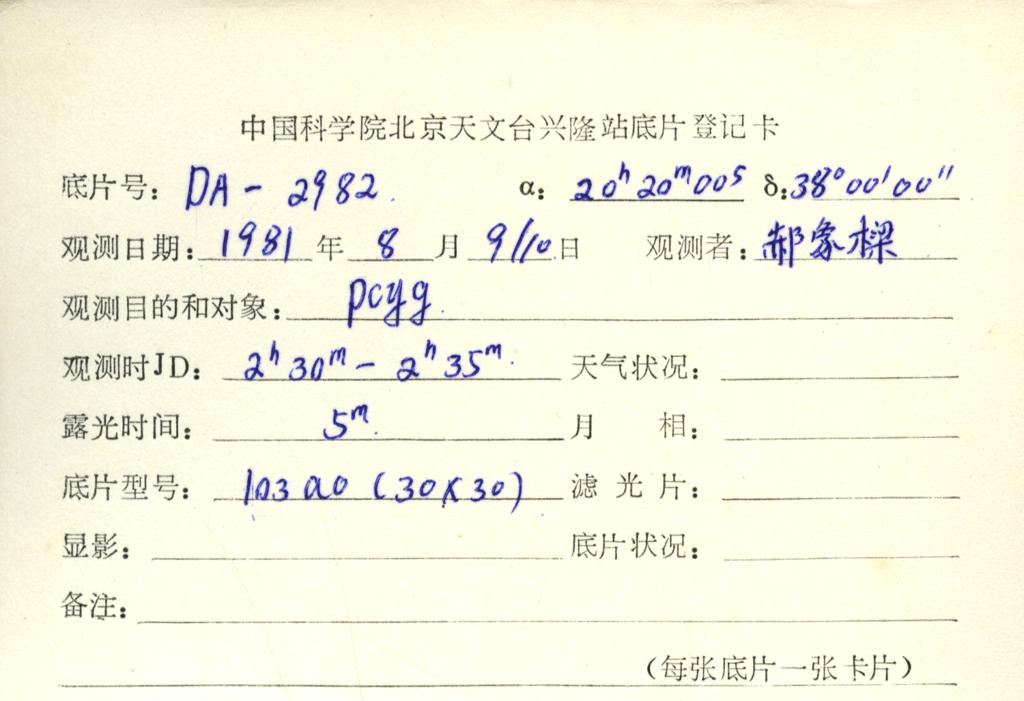 中国科学院北京天文台兴隆站底片登记卡
底片号: DA - 2982. α: 20ʰ 20ᵐ 00ˢ δ: 38°00′00″
观测日期: 1981 年 8 月 9/10 日 观测者: 郝象樑
观测目的和对象: pcyg.
观测时JD: 2ʰ 30ᵐ - 2ʰ 35ᵐ. 天气状况:
露光时间: 5ᵐ. 月 相:
底片型号: 103a0 (30×30) 滤 光 片:
显影: 底片状况:
备注:
(每张底片一张卡片)